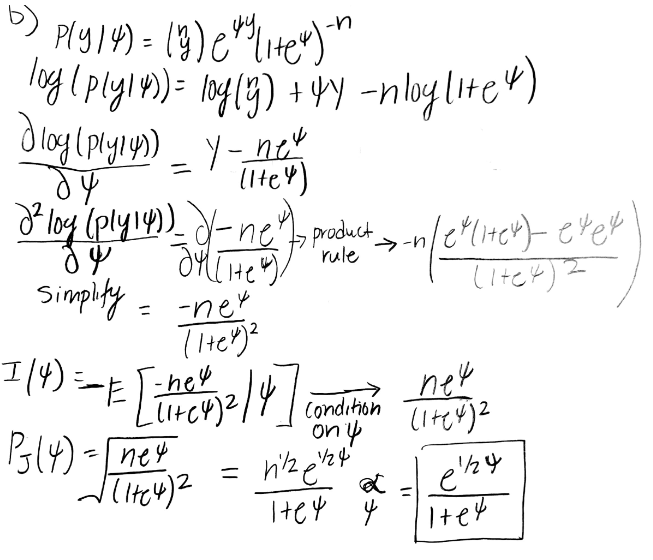 b) P(y|ψ) = (n y) e^{ψy} (1+e^ψ)^{-n}
log(p(y|ψ)) = log(n y) + ψy - n log(1+e^ψ)
∂log(p(y|ψ))/∂ψ = y - ne^ψ/(1+e^ψ)
∂² log(p(y|ψ))/∂ψ = ∂/∂ψ(-ne^ψ/(1+e^ψ)) → product rule → -n(e^ψ(1+e^ψ) - e^ψe^ψ/(1+e^ψ)²)
simplify = -ne^ψ/(1+e^ψ)²
I(ψ) = -E[-ne^ψ/(1+e^ψ)² | ψ] condition on ψ → ne^ψ/(1+e^ψ)²
P_J(ψ) = √(ne^ψ/(1+e^ψ)²) = n^{1/2}e^{1/2ψ}/1+e^ψ ∝_ψ = e^{1/2ψ}/1+e^ψ